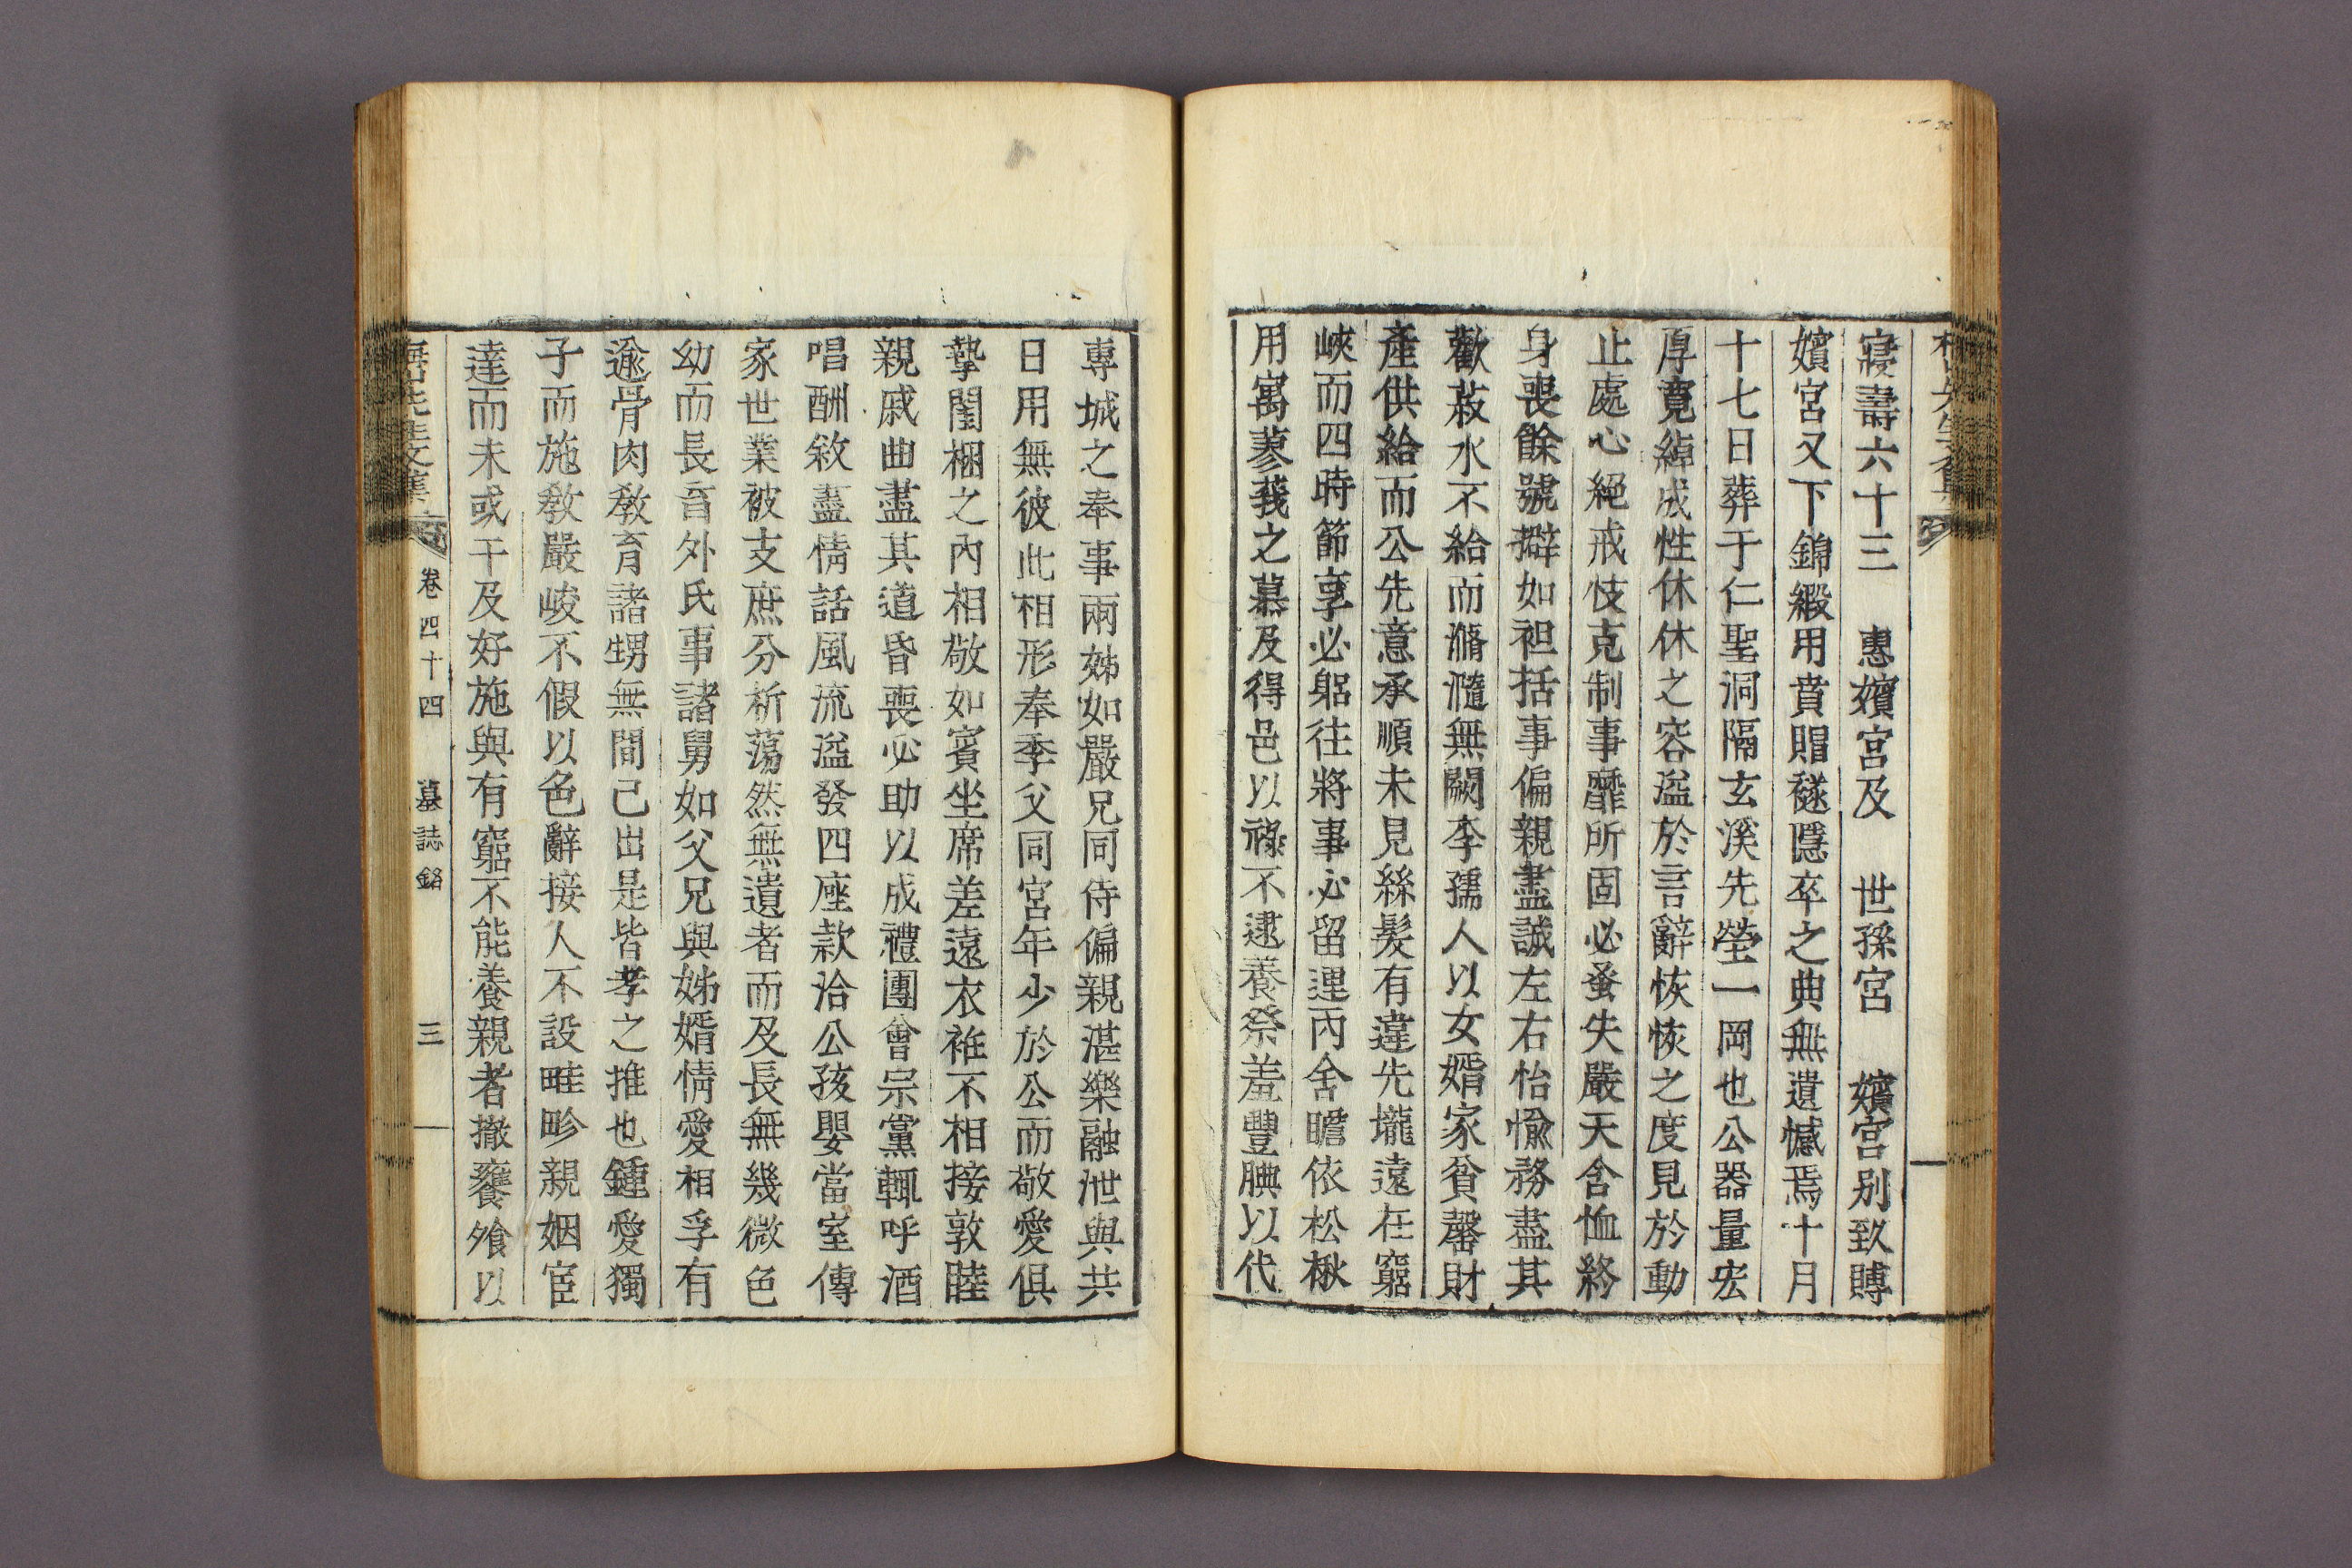 寢壽六十三 惠嬪宮及 世孫宮 嬪宮別致賻
嬪宮又下錦緞用賁賵襚隱卒之典無遺憾焉十月
十七日葬于仁聖洞隔玄溪先塋一岡也公器量宏
厚寬綽成性休休之容溢於言辭恢恢之度見於動
止處心絕戒忮克制事靡所固必蚤失嚴天含恤終
身喪餘號擗如袒括事偏親盡誠左右怡愉務盡其
歡菽水不給而滫瀡無闕李孺人以女婿家貧罄財
產供給而公先意承順未見絲髮有違先壠遠在窮
峽而四時節享必躬往將事必留連丙舍瞻依松楸
用寓蓼莪之慕及得邑以祿不逮養祭羞豐腆以代
專城之奉事兩姊如嚴兄同侍偏親湛樂融泄與共
日用無彼此相形奉季父同宮年少於公而敬愛俱
摯閨梱之內相敬如賓坐席差遠衣袵不相接敦睦
親戚曲盡其道昏喪必助以成禮團會宗黨輒呼酒
唱酬敘盡情話風流溢發四座款洽公孩嬰當室傳
家世業被支庶分析蕩然無遺者而及長無幾微色
幼而長育外氏事諸舅如父兄與姊婿情愛相孚有
逾骨肉敎育諸甥無間己出是皆孝之推也鍾愛獨
子而施敎嚴峻不假以色辭接人不設畦畛親姻宦
達而未或干及好施與有窮不能養親者撤饔飧以
先生文集 卷四十四 墓誌銘 三